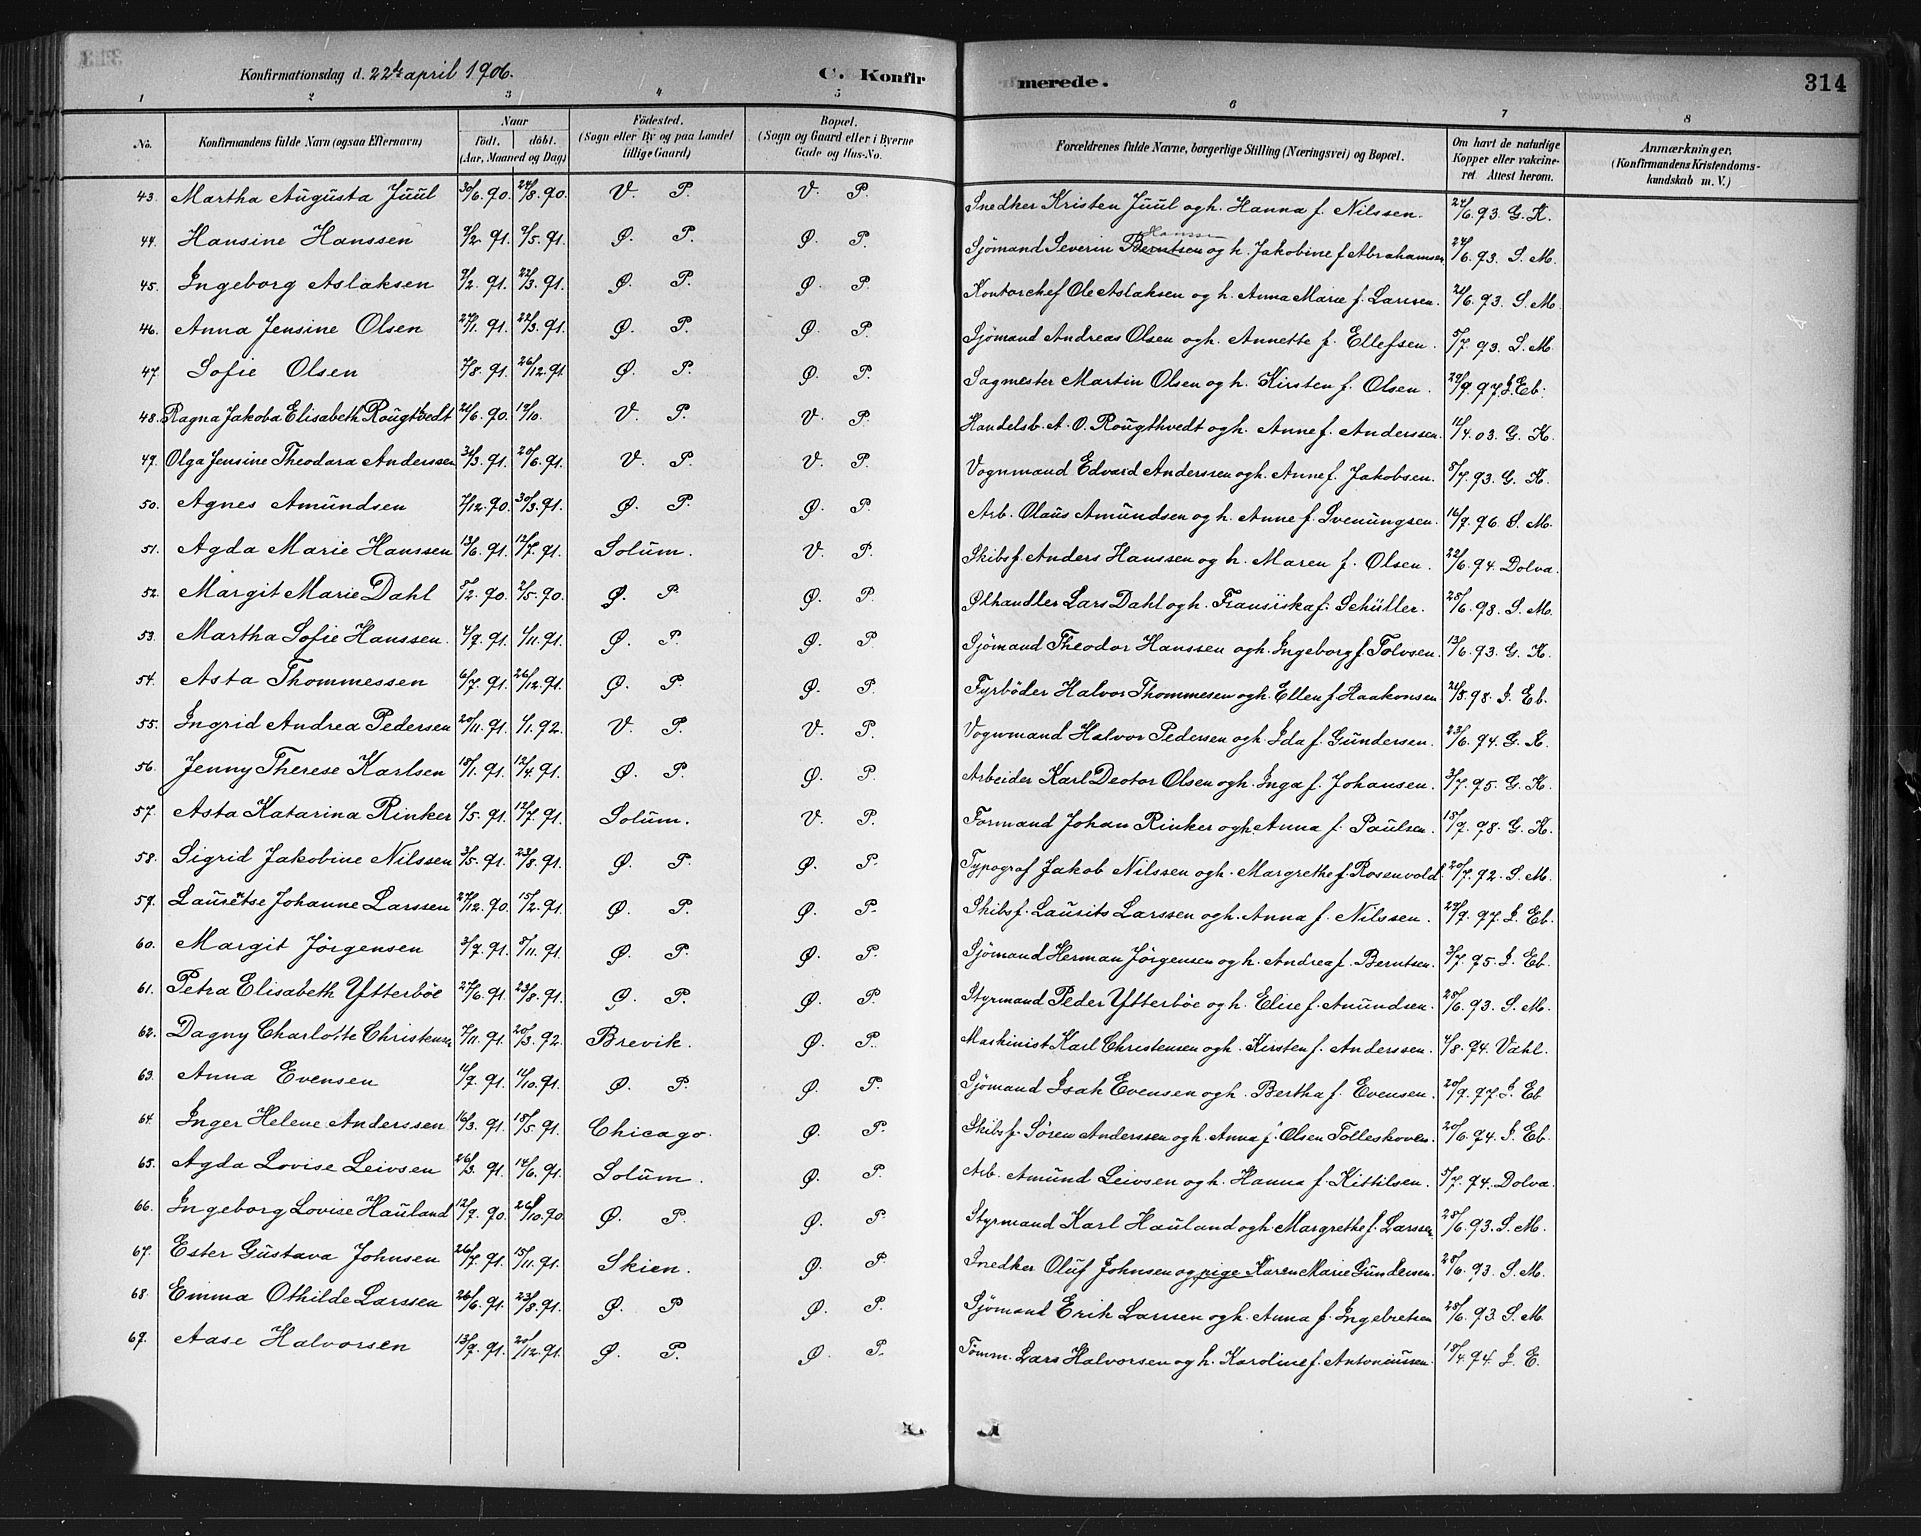 Konfirmationsdag d. 22de april 1906. C. Konfirmerede. 314
1 2 3 4 5 6 7 8
No. Konfirmandens fulde Navn (ogsaa Efternavn) Naar födt. döbt. (Aar, Maaned og Dag) Födested. (Sogn eller By og paa Landet tillige Gaard) Bopæl. (Sogn og Gaard eller i Byerne Gade og Hus-No. Forældrenes fulde Navne, borgerlige Stilling (Næringsvei) og Bopæl. Om havt de naturlige Kopper eller vaccineret Attest herom. Anmærkninger, (Konfirmandens Kristendomskundskab m. V.)
43. Martha Augusta Juul 30/6. 90. 24/8. 90. V. P. V. P. Snedker Kristen Juul og h. Hanna f. Nilssen. 24/6. 93. G. K.
44. Hansine Hanssen 7/2. 91. 7/5. 91. Ø. P. Ø. P. Sjömand Severin Berntsen Hanssen og h. Jakobine f. Abrahamsen 24/6. 93. S. M.
45. Ingeborg Aslaksen 9/2. 91. 22/3. 91. Ø. P. Ø. P. Kontorchef Ole Aslaksen og h. Anna Marie f. Larssen. 21/6. 93. S. M.
46. Anna Jensine Olsen 27/1. 91. 22/3. 91. Ø. P. Ø. P. Sjömand Andreas Olsen og h. Annette f. Ellefsen. 5/7. 93. S. M.
47. Sofie Olsen 7/8. 91. 26/12. 91. Ø. P. Ø. P. Sagmester Martin Olsen og h. Kirsten f. Olsen. 29/9. 97. J. Eb.
48. Ragna Jakoba Elisabeth Rougthvedt 21/6. 90. 19/10. V. P. V. P. Handelsb. A. O. Rougthvedt og h. Anne f. Anderssen. 12/4. 03. G. K.
49. Olga Jensine Theodora Anderssen 31/3. 91. 20/6. 91. V. P. V. P. Vognmand Edvard Anderssen og h. Anne f. Jakobsen. 5/7. 93. G. K.
50. Agnes Amundsen 7/12. 90. 30/3. 91. Ø. P. Ø. P. Arb. Olaus Amundsen og h. Anne f. Svenungsen. 16/9. 96. S. M.
51. Agda Marie Hanssen 13/6. 91. 12/7. 91. Solum. V. P. Skibsf. Anders Hanssen og h. Maren f. Olsen. 22/6. 94. Dolva.
52. Margit Marie Dahl 5/2. 90. 2/5. 90. Ø. P. Ø. P. Ølhandler Lars Dahl og h. Fransiska f. Schüller. 25/6. 98. S. M.
53. Martha Sofie Hanssen. 4/9. 91. 1/11. 91. Ø. P. Ø. P. Sjömand Theodor Hanssen og h. Ingeborg f. Tolvsen. 13/6. 93. G. K.
54. Asta Thommessen 6/7. 91. 26/12. 91. Ø. P. Ø. P. Fyrböder Halvor Thommesen og h. Ellen f. Haakonsen 21/8. 98. J. Eb.
55. Ingrid Andrea Pedersen 20/11. 91. 1/1. 92. V. P. V. P. Vognmand Halvor Pedersen og h. Ida f. Gundersen. 23/6. 94. G. K.
56. Jenny Therese Karlsen 18/1. 91. 12/4. 91. Ø. P. Ø. P. Arbeider Karl Deotor Olsen og h. Inga f. Johansen. 3/7. 95. G. K.
57. Asta Katarina Rinker 1/5. 91. 12/7. 91. Solum. V. P. Formand Johan Rinker og h. Anna f. Paulsen. 15/9. 98. G. K.
58. Sigrid Jakobine Nilssen 3/5. 91. 23/8. 91. Ø. P. Ø. P. Typograf Jakob Nilssen og h. Margrethe f. Rosenvold. 20/7. 92. S. M.
59. Lauretse Johanne Larssen 27/12. 90. 15/2. 91. Ø. P. Ø. P. Skibsf. Laurits Larssen og h. Anna f. Nilssen. 29/9. 97. J. Eb.
60. Margit Jörgensen 3/9. 91. 5/11. 91. Ø. P. Ø. P. Sjömand Herman Jörgensen og h. Andrea f. Berntsen. 3/7. 95. J. Eb.
61. Petra Elisabeth Ytterböe 27/6. 91. 23/8. 91. Ø. P. Ø. P. Styrmand Peder Ytterböe og h. Elise f. Amundsen. 28/6. 93. S. M.
62. Dagny Charlotte Christensen 7/11. 91. 20/3. 92. Brevik. Ø. P. Maskinist Karl Christensen og h. Kirsten f. Anderssen. 4/8. 94. Vahl.
63. Anna Evensen 12/9. 91. 11/10. 91. Ø. P. Ø. P. Sjömand Isak Evensen og h. Bertha f. Evensen. 20/9. 97. J. Eb
64. Inger Helene Anderssen 16/3. 91. 18/5. 91. Chicago. Ø. P. Skibsf. Sören Anderssen og h. Anna f. Olsen Tolleshoven. 20/6. 94. J. Eb.
65. Agda Lovise Leivsen 26/3. 91. 14/6. 91. Solum. Ø. P. Arb. Amund Leivsen og h. Hanna f. Kittilsen. 5/7. 94. Dolva.
66. Ingeborg Lovise Hauland 12/9. 90. 26/10. 90. Ø. P. Ø. P. Styrmand Karl Hauland og h. Margrethe f. Larssen 28/6. 93. S. M.
67. Ester Gustava Johnsen 26/7. 91. 15/11. 91. Skien. Ø. P. Snedker Oluf Johnsen og pige Karen Marie Gundersen. 28/6. 93. S. M.
68. Emma Othilde Larssen 26/6. 91. 23/8. 91. Ø. P Ø. P. Sjömand Erik Larssen og h. Anna f. Ingebretsen 28/6. 93. S. M.
69. Aase Halvorsen 13/9. 91. 20/12. 91. Ø. P. Ø. P. Tömm. Lars Halvorsen og h. Karoline f. Antoniussen. 18/4. 94. J. E.